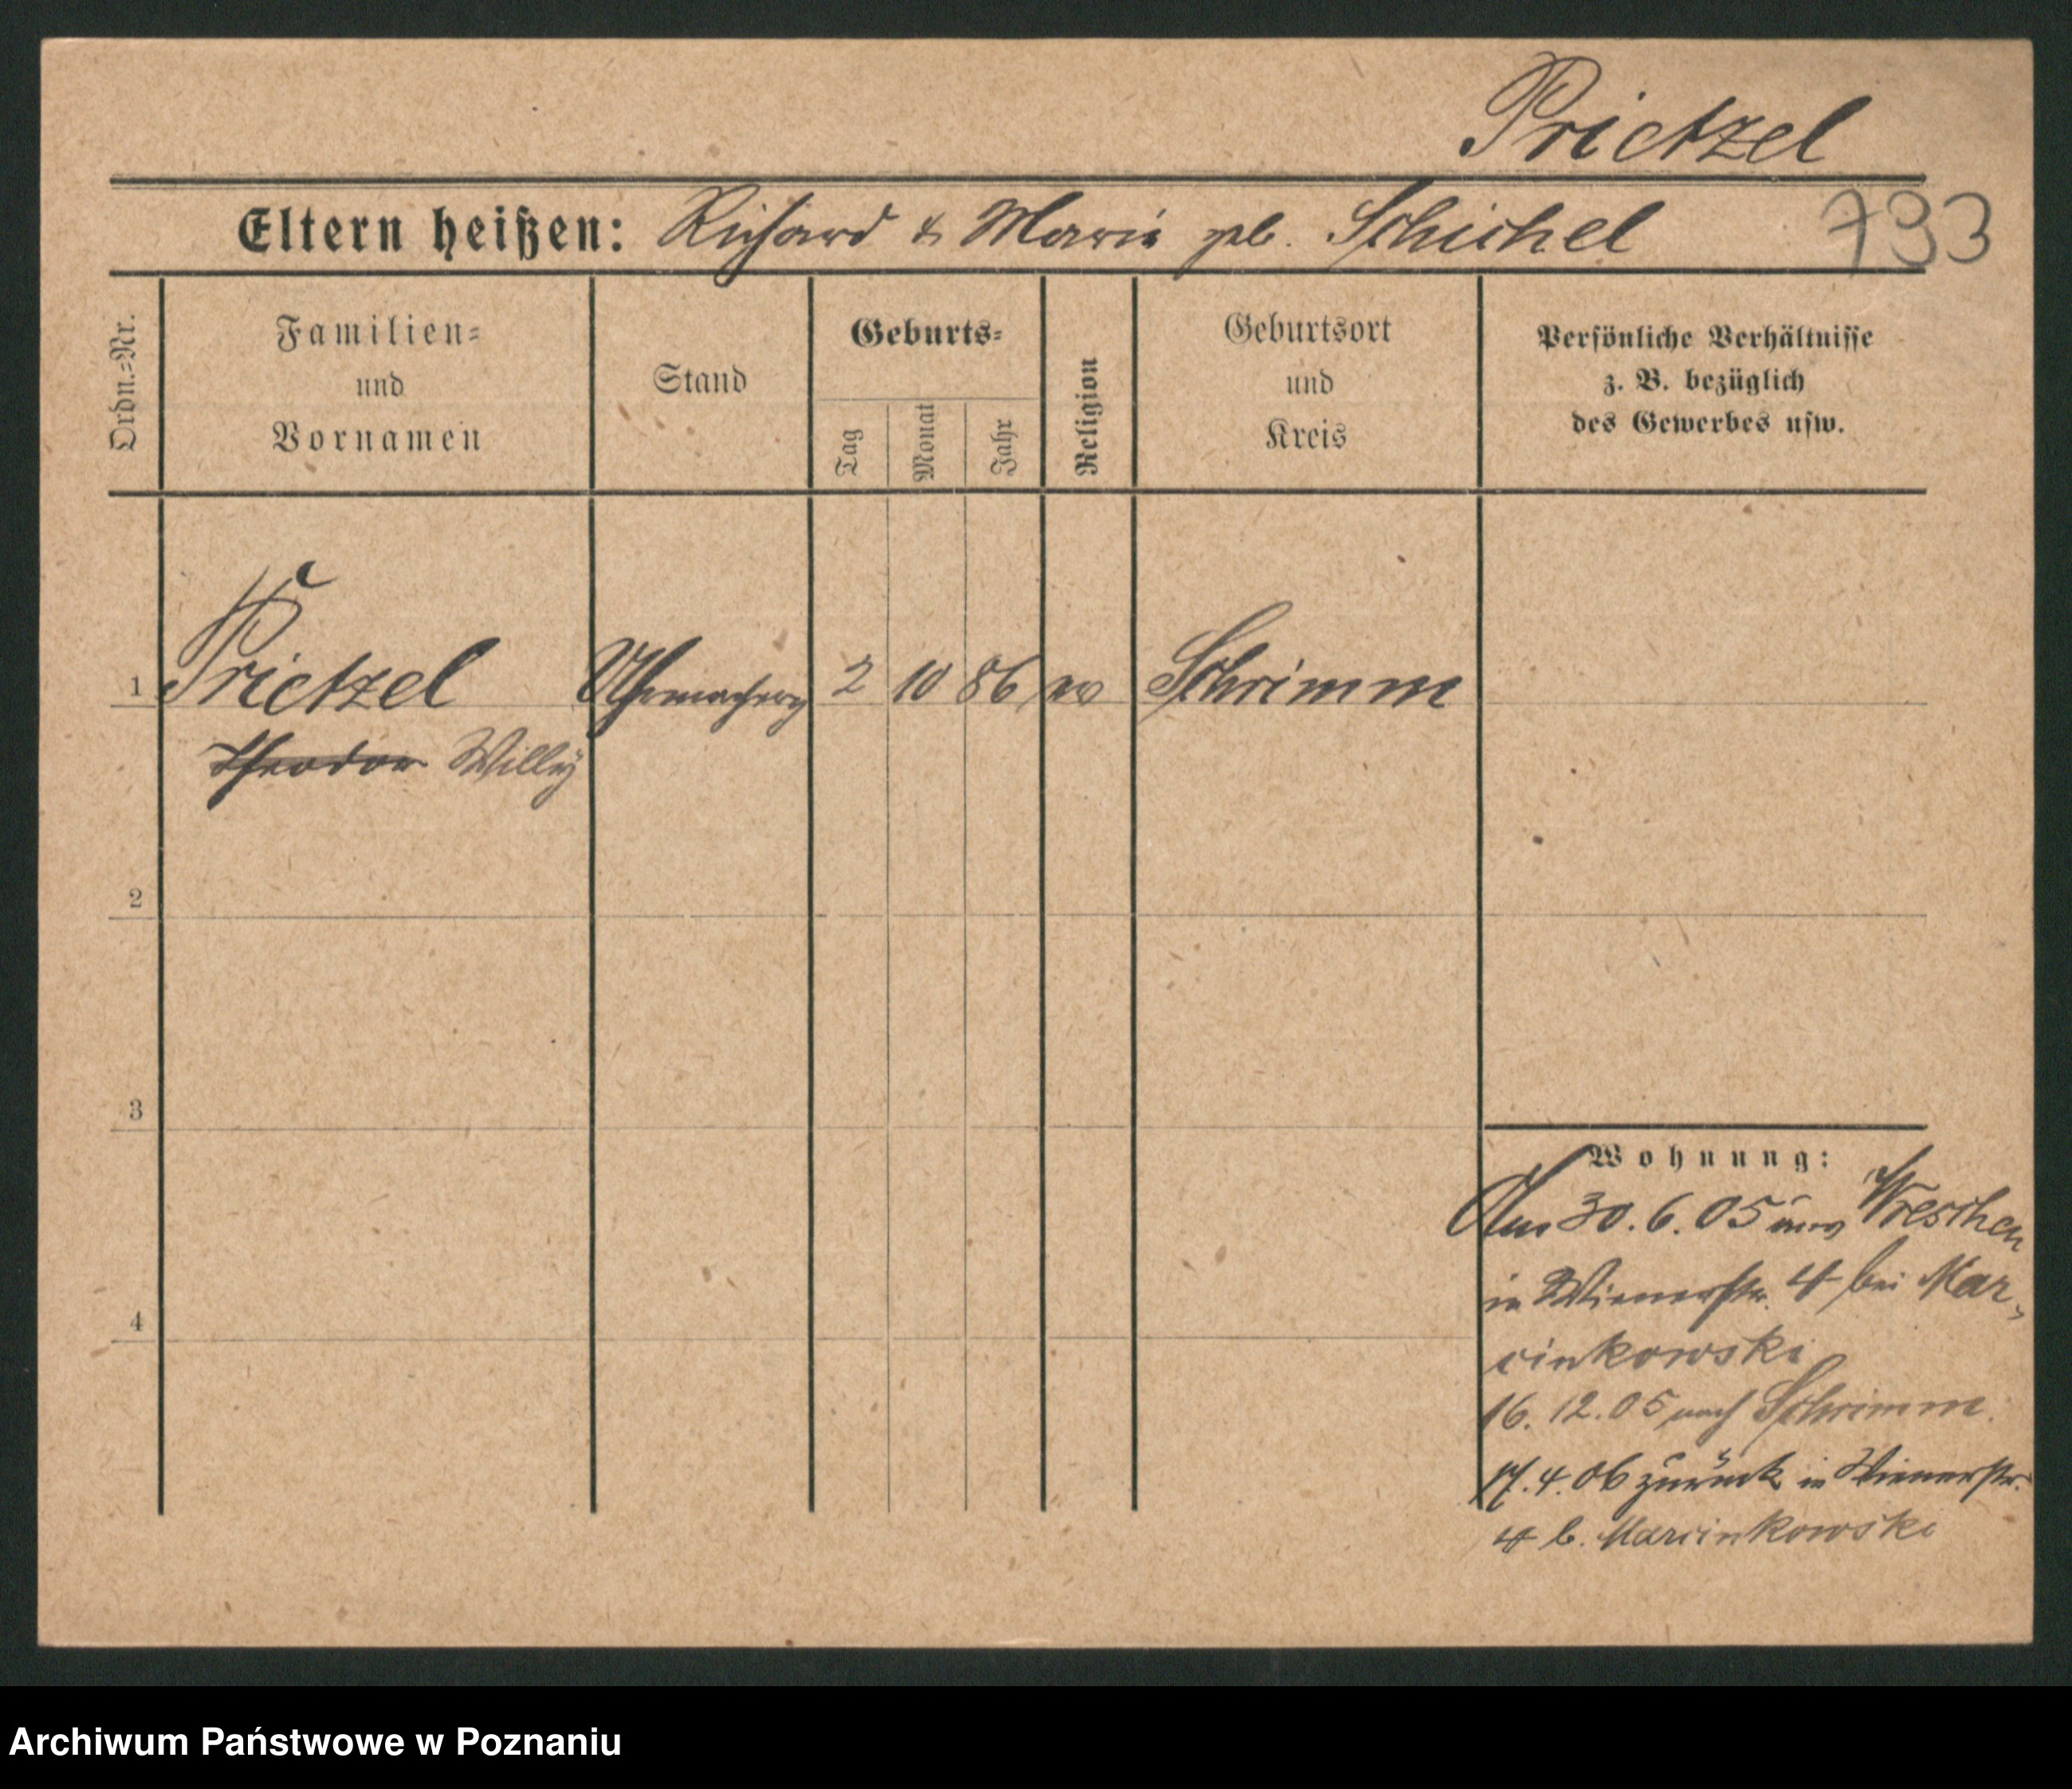 Prietzel
Eltern heißen: Richard & Marie geb. Schichel 793
Ordn.-Nr.
Familien-
und
Vornamen
Stand
Geburts-
Tag
Monat
Jahr
Religion
Geburtsort
und
Kreis
Persönliche Verhältnisse
z. B. bezüglich
des Gewerbes usw.
1 Prietzel 2 10 86 ev Schrimm
Theodor Willy
2
3
4
Wohnung:
30.6.05 aus Wreschen
in Wienerstr. 4 bei Mar-
cinkowski
16.12.05 nach Schrimm.
17.4.06 zurück in Wienerstr.
4 b. Marcinkowski
Archiwum Państwowe w Poznaniu